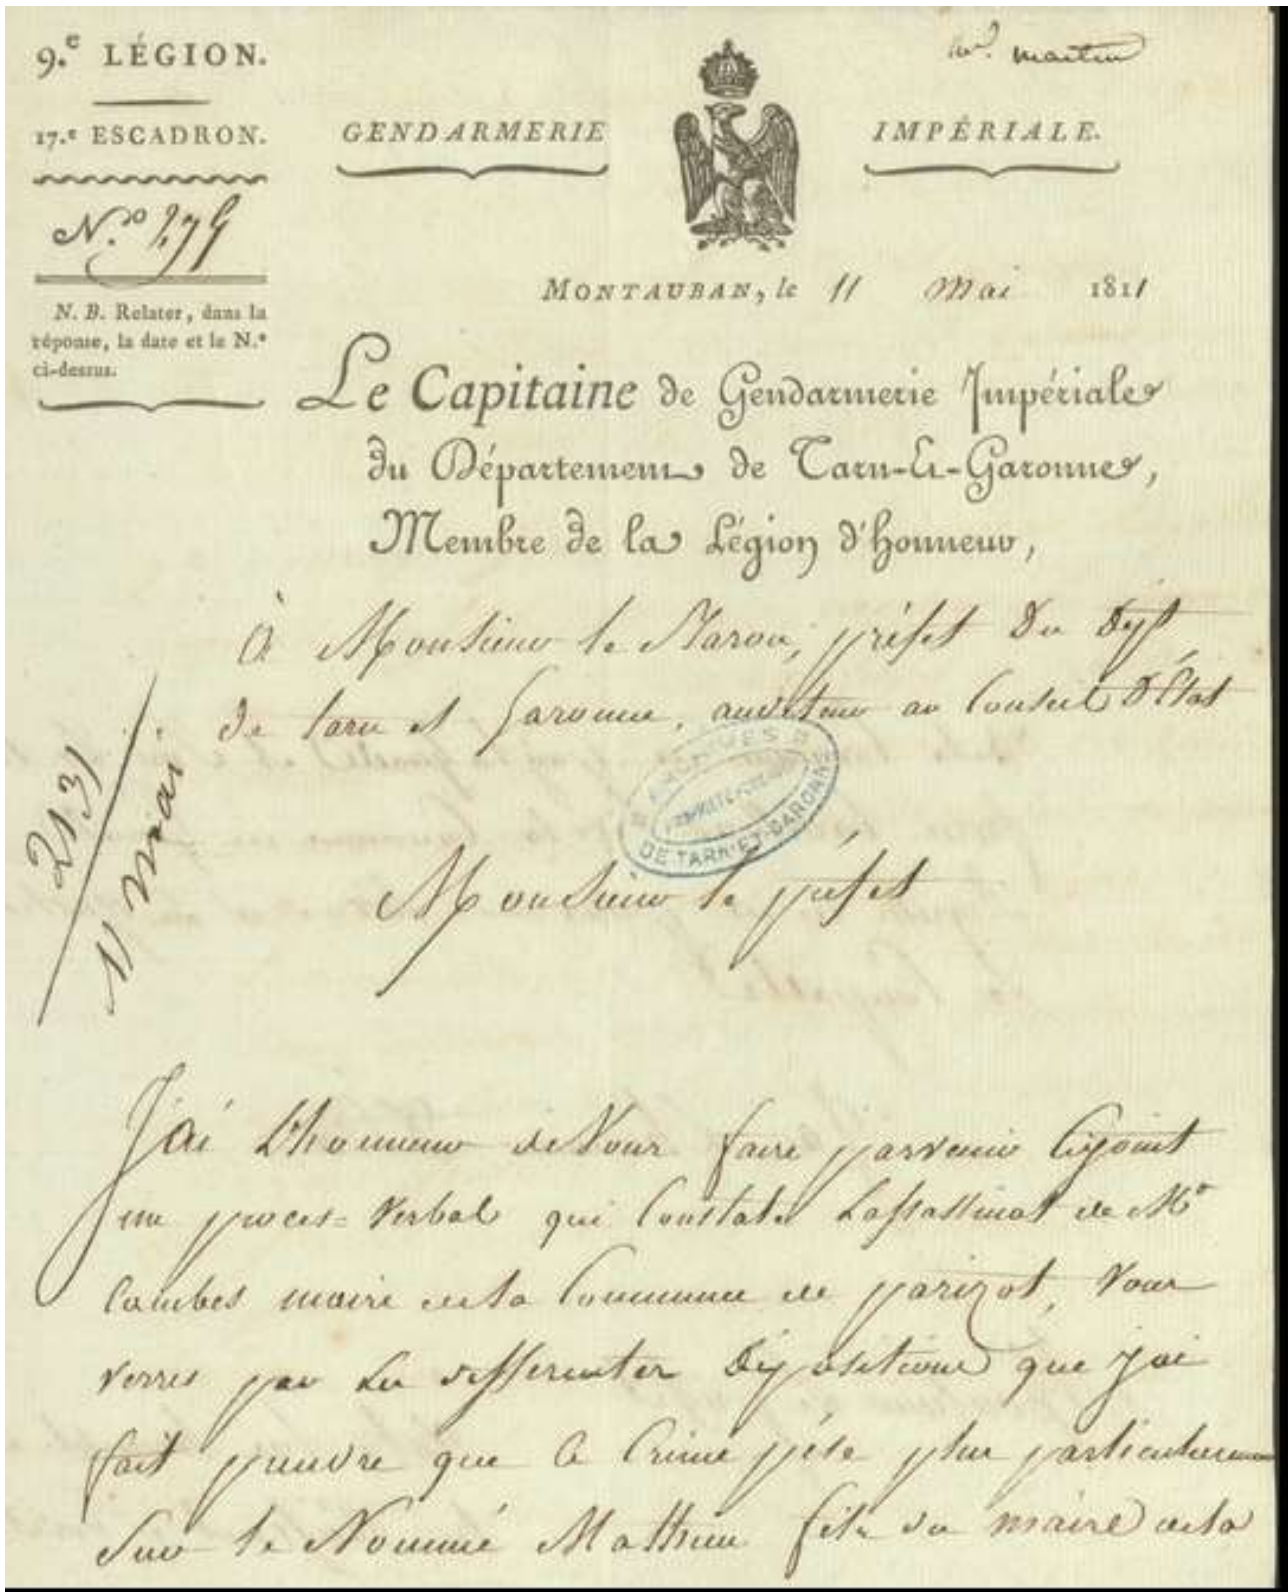 9.e LÉGION.
17.e ESCADRON.
N.o 279
N. B. Relater, dans la
réponse, la date et le N.o
ci-dessus.
martin
GENDARMERIE IMPÉRIALE.
MONTAUBAN, le 11 mai 1811
Le Capitaine de Gendarmerie Impériale
du Département de Tarn-Et-Garonne,
Membre de la Légion d'honneur,
À Monsieur le Baron, préfet du Dépt
de tarn et Garonne, auditeur au Conseil D'État
2131
11 mai
ARCHIVES
DE TARN-ET-GARONNE
Monsieur le préfet
J'ai L'honneur de Vous faire parvenir Cijoint
un proces=Verbal qui Constate Lassassinat de Mr
Combes maire dela Commune de parizot, Vous
verrés par Les differentes Dépositions que jai
fait prendre que le Crime pése plus particulierement
Sur le Nommé Mathieu fils du maire dela